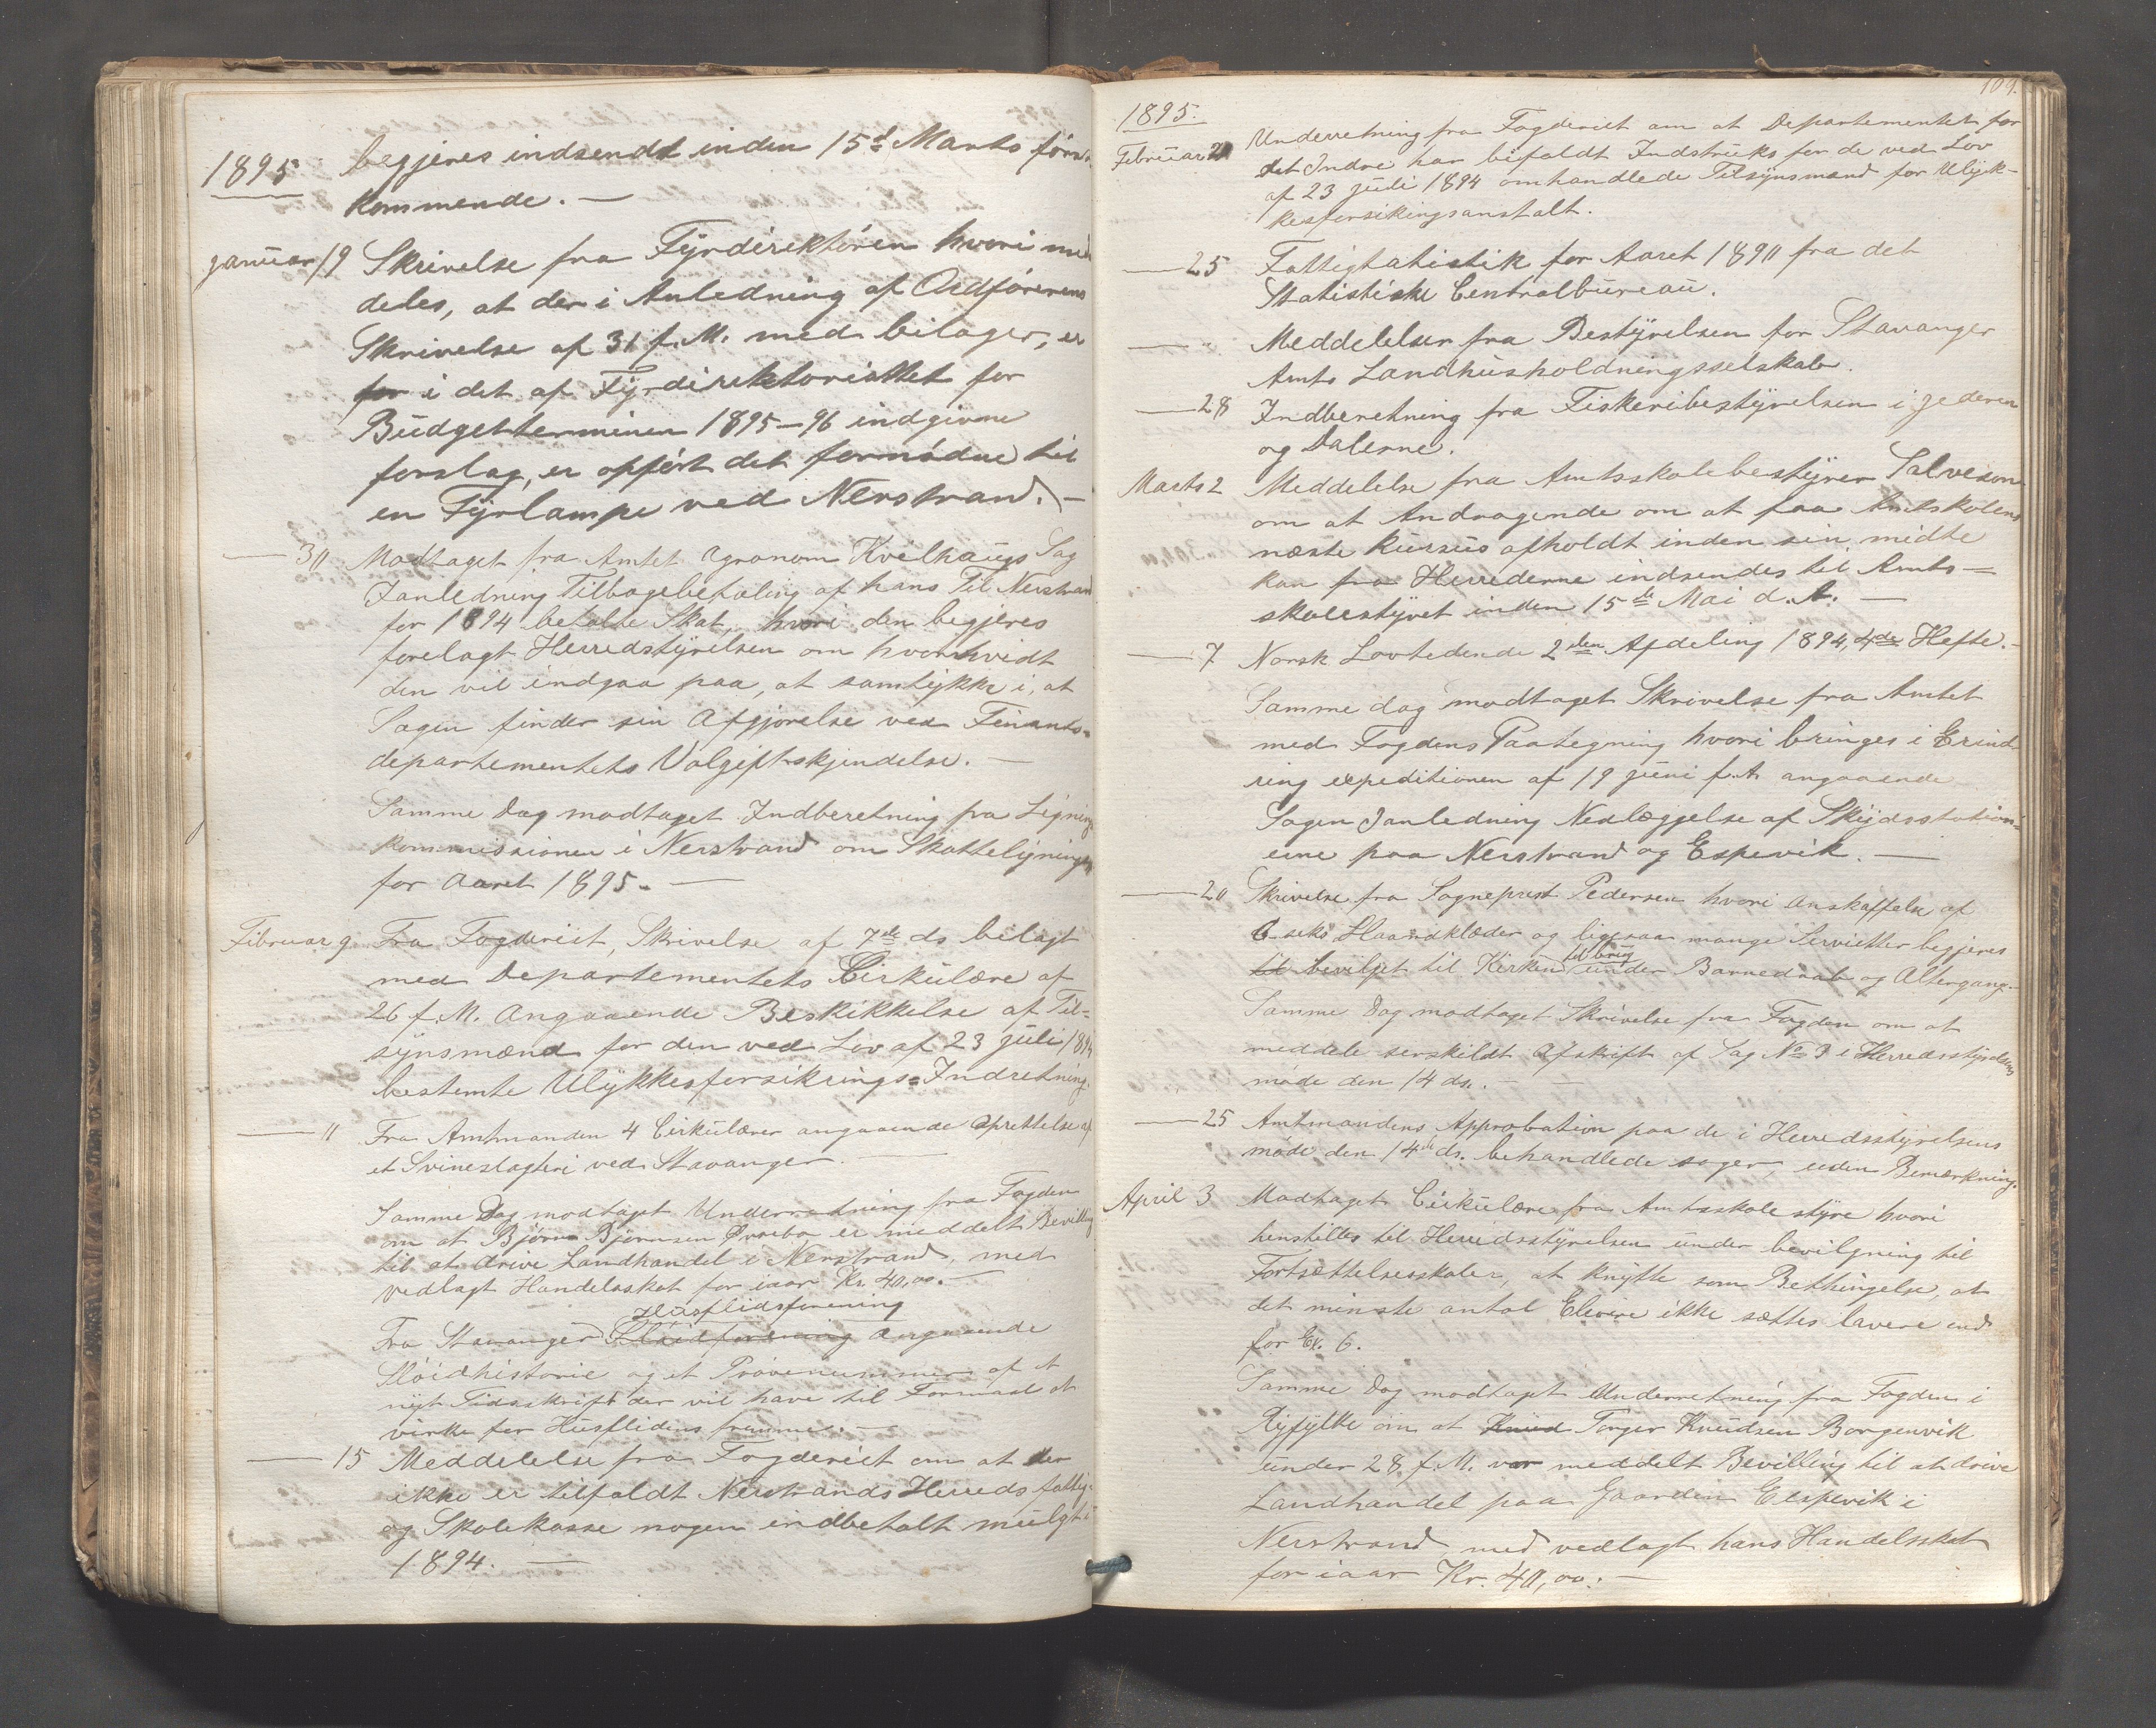 1895 begjeres indsendt inden 15d Marts først
kommende. —
januar 19 Skrivelse fra Fyrdirektøren hvori med
deles, at der i Anledning af Ordførerens
Skrivelse af 31 f. M. med bilager, er
for i det af Fyrdirektoriattet for
Budgetterminen 1895–96 indgivne
forslag, er opført det fornødne til
en Fyrlampe ved Nerstrand. —
— 30 Modtaget fra Amtet Agronom Kvilhaugs Sag
Ianledning Tilbagebetaling af hans Til Nerstrand
for 1894 betalte Skat, hvori den begjeres
forelagt Herredstyrelsen om hvorvidt
den vil indgaa paa, at samtykke i, at
Sagen finder sin Afgjørelse ved Finants-
departementets Volgiftskjendelse. —
Samme Dag modtaget Indberetning fra Lignings
kommissionen i Nerstrand om Skatteligningen
for Aaret 1895. —
Februar 9 Fra Fogderiet, Skrivelse af 7de ds bilagt
med Departementets Cirkulære af
26 f. M. Angaaende Beskikkelse af Til-
synsmænd for den ved Lov af 23 juli 1894
bestemte Ulykkesforsikrings=Indretning.
— 11 Fra Amtmanden 4 Cirkulærer angaaende Oprettelse af
et Svineslagteri ved Stavanger. —
Samme Dag modtaget Underretning fra Fogden
om at Bjørn Bjørnsen er meddelt Bevilling
til at drive Landhandel i Nerstrand, med
vedlagt Handelsskat for iaar Kr. 40,00. —
Husflidsforening
Fra Stavanger Sløidforening angaaende
Sløidhistorie og et Prøvenummer af et
nyt Tidsskrift der vil have til Formaal at
virke for Husflidens fremme. —
— 15 Meddelelse fra Fogderiet om at der
ikke er tilfaldt Nerstrands Herreds fattig-
og Skolekasse nogen indbetalt mulgt i
1894. —
109.
1895.
Februar 21 Underretning fra Fogderiet om at Departementet for
det Indre har bifaldt Indstruks for de ved Lov
af 23 juli 1894 omhandlede Tilsynsmænd for Ulyk-
kesforsikringsanstalt.
— 25 Fattigtatistik for Aaret 1890 fra det
Statistiske Centralbureau.
— " Meddelelser fra Bestyrelsen for Stavanger
Amts Landhusholdningsselskab.
— 28 Indberetning fra Fiskeribestyrelsen i jederen
og Dalerne.
Marts 2 Meddelelse fra Amtsskolebestyrer Salveson
om at Andragende om at faa Amtskolens
næste Kursus afholdt inden sin midte
kan fra Herrederne indsendes til Amts=
skolestyret inden 15de Mai d. A. —
— 7 Norsk Lovtidende 2den Afdeling 1894, 4de Hefte. —
Samme dag modtaget Skrivelse fra Amtet
med Fogdens Paategning hvori bringes i Erind
ring expeditionen af 19 juni f. A. angaaende
Sagen Ianledning Nedlæggelse af Skydsstation-
erne paa Nerstrand og Espevik. —
— 20 Skrivelse fra Sogneprest Pedersen hvori Anskaffelse af
6 seks Haandklæder og ligesaa mange Servietter begjeres
til brug
til bevilget til Kirken under Barnedaab og Altergang. —
Samme Dag modtaget Skrivelse fra Fogden om at
meddele serskildt Afskrift af Sag No 3 i Herredsstyrelsens
møde den 14 ds. —
— 25 Amtmandens Approbation paa de i Herredsstyrelsens
møde den 14de ds. behandlede sager, uden Bemærkning.
April 3 Modtaget Cirkulære fra Amtsskolestyre hvori
henstilles til Herredsstyrelsen under bevilgning til
Fortsættelsesskoler, at knytte som Bettingelse, at
det minste antal Elever ikke sættes lavere end
for Ex. 6.
Samme Dag modtaget Underretning fra Fogden i
Ryfylke om at Knud Torger Knudsen Borgenvik
under 28 f. M. var meddelt Bevilling til at drive
Landhandel paa Gaarden Espevik i
Nerstrand, med vedlagt hans Handelsskat
for iaar Kr. 40,00. —